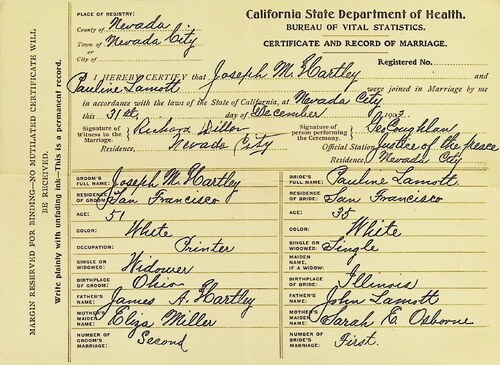 PLACE OF REGISTRY:
County of Nevada
Town of Nevada City
or
City of
California State Department of Health.
BUREAU OF VITAL STATISTICS.
CERTIFICATE AND RECORD OF MARRIAGE.
Registered No.
I HEREBY CERTIFY that Joseph M. Hartley and
Pauline Lamott were joined in Marriage by me
in accordance with the laws of the State of California, at Nevada City
this 31st. day of December 190
Signature of Witness to the Marriage, Richard Dillon
Residence, Nevada City
Signature of person performing the Ceremony, Geo Coughlan
Official Station, Justice of the peace
Residence, Nevada City
GROOM'S FULL NAME: Joseph M. Hartley
BRIDE'S FULL NAME: Pauline Lamott.
RESIDENCE OF GROOM: San Francisco
RESIDENCE OF BRIDE: San Francisco
AGE: 51
AGE: 35
COLOR: White
COLOR: White
OCCUPATION: Printer
SINGLE OR WIDOWED: Single
SINGLE OR WIDOWED: Widower
MAIDEN NAME, IF A WIDOW:
BIRTHPLACE OF GROOM: Ohio
BIRTHPLACE OF BRIDE: Illinois
FATHER'S NAME: James A. Hartley
FATHER'S NAME: John Lamott
MOTHER'S MAIDEN NAME: Eliza Miller
MOTHER'S MAIDEN NAME: Sarah E. Osborne
NUMBER OF GROOM'S MARRIAGE: Second
NUMBER OF BRIDE'S MARRIAGE: First.
MARGIN RESERVED FOR BINDING—NO MUTILATED CERTIFICATE WILL
BE RECEIVED.
Write plainly with unfading ink—This is a permanent record.